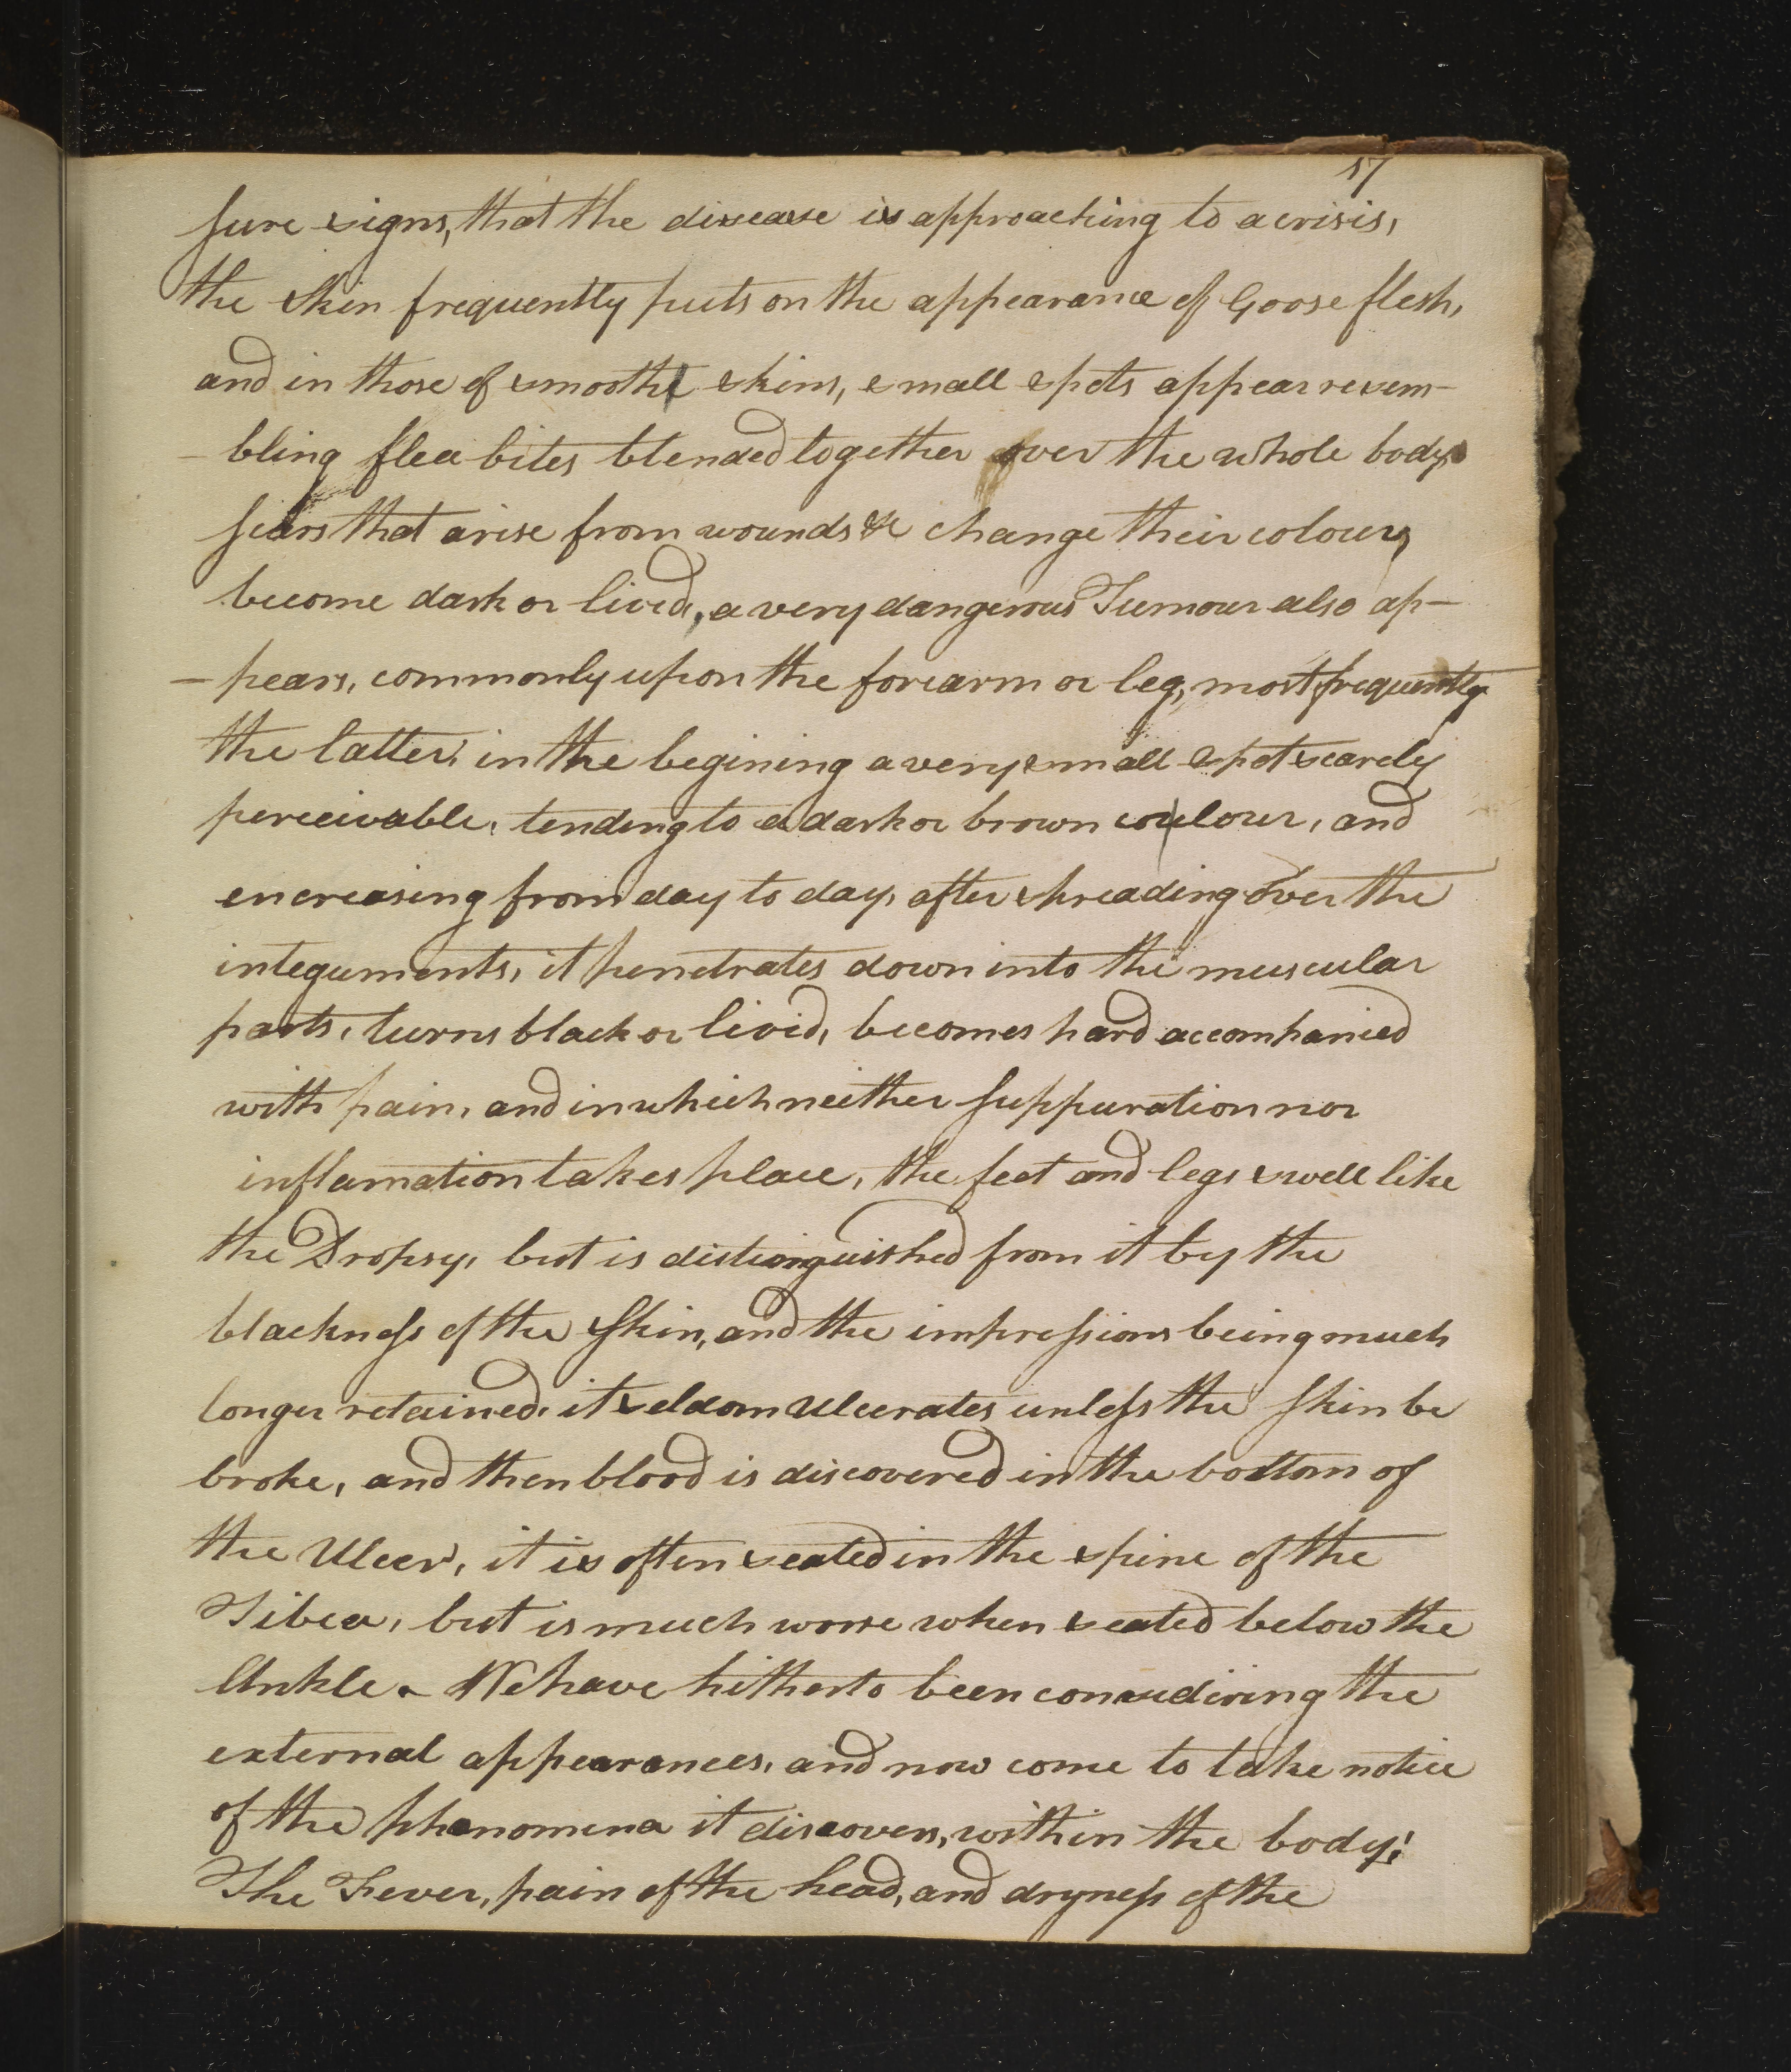 57
sure signs, that the disease is approaching to a crisis,
the Skin frequently puts on the appearance of Goose flesh,
and in those of smooth skins, small spots appear resem-
- bling flea bites blended together over the whole body,
scars that arise from wounds &c change their colour,
become dark or livid, a very dangerous Tumour also ap-
- pears, commonly upon the forearm or leg, most frequently
the latter, in the begining a very small spot scarcely
perceivable, tending to a dark or brown colour, and
encreasing from day to day, after spreading over the
integuments, it penetrates down into the muscular
parts, turns black or livid, becomes hard accompanied
with pain, and in which neither suppuration nor
inflamation takes place, the feet and legs swell like
the Dropsy, but is distinguished from it by the
blackness of the Skin, and the impressions being much
longer retained, it seldom Ulcerates unless the Skin be
broke, and then blood is discovered in the bottom of
the Ulcer, it is often seated in the spine of the
Tibea, but is much worse when seated below the
Ankle. We have hitherto been considiring the
external appearances, and now come to take notice
of the phenomena it discovers, within the body;
The Fever, pain of the head, and dryness of the